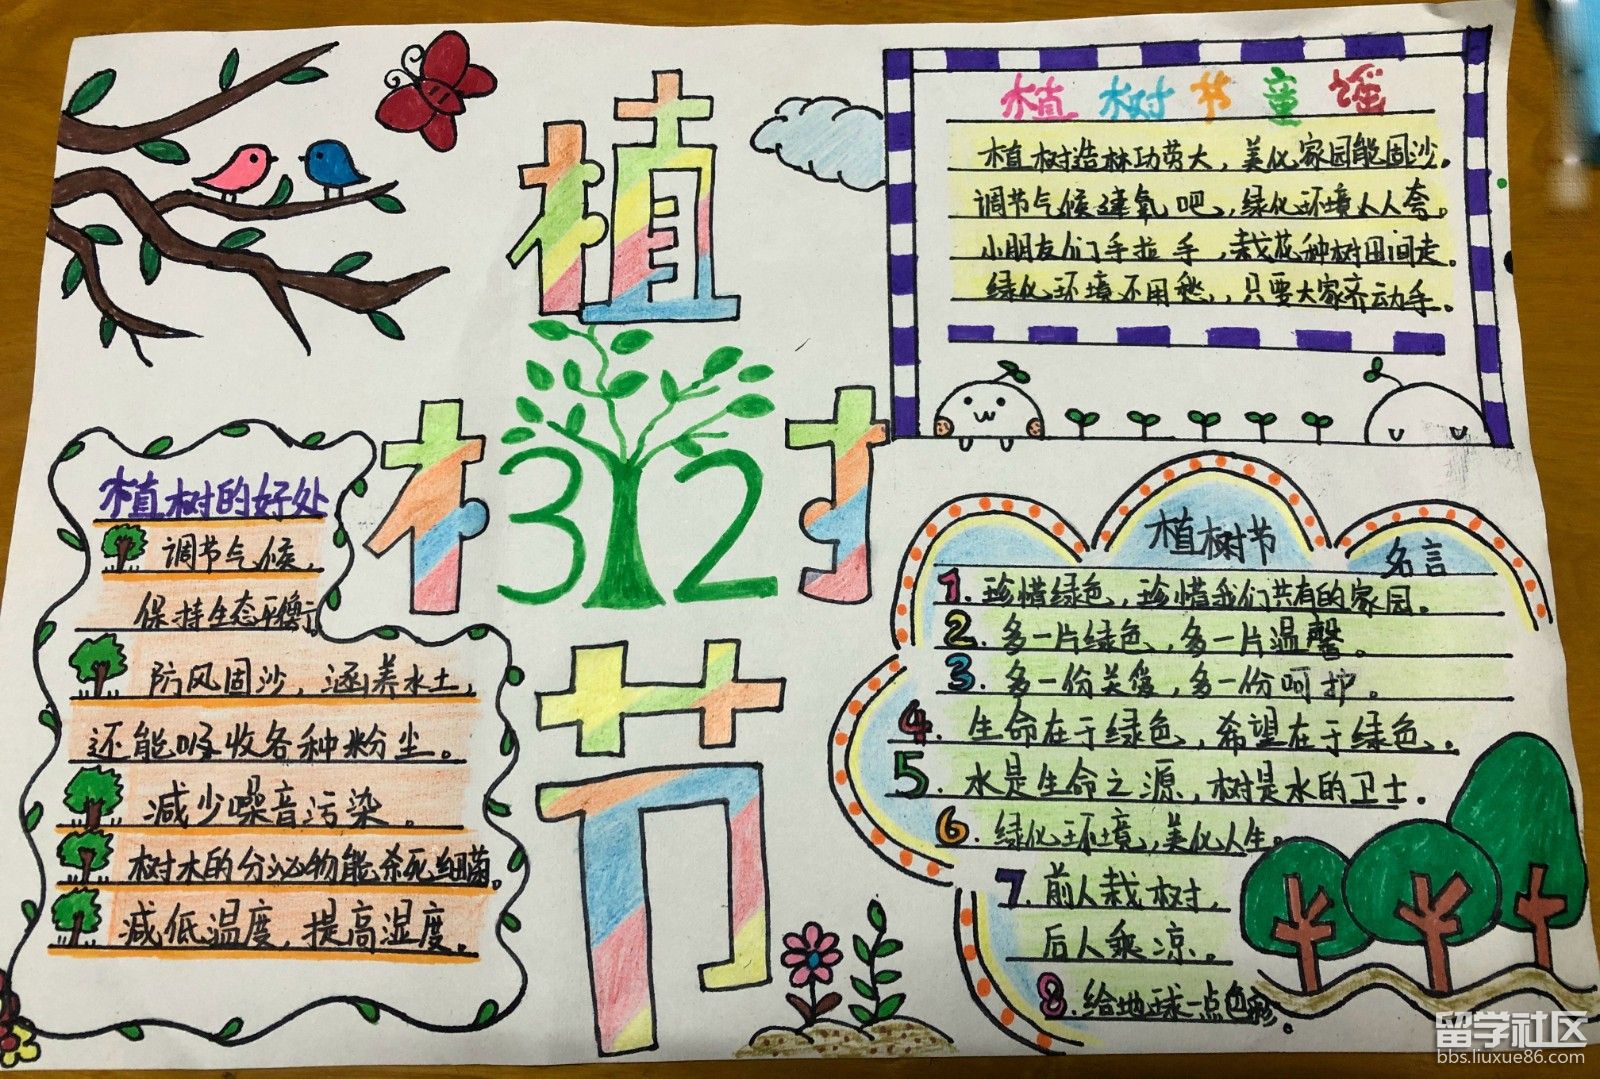 植树节
312
植树节童谣
植树造林功劳大，美化家园能固沙。
调节气候造氧吧，绿化环境人人夸。
小朋友们手拉手，栽花种树田间走。
绿化环境不用愁，只要大家齐动手。
植树的好处
调节气候，
保持生态平衡。
防风固沙，涵养水土，
还能吸收各种粉尘。
减少噪音污染。
树木的分泌物能杀死细菌。
减低温度，提高湿度。
植树节
名言
1. 珍惜绿色，珍惜我们共有的家园。
2. 多一片绿色，多一片温馨。
3. 多一份关爱，多一份呵护。
4. 生命在于绿色，希望在于绿色。
5. 水是生命之源，树是水的卫士。
6. 绿化环境，美化人生。
7. 前人栽树，
后人乘凉。
8. 给地球一点色彩。
留学社区
bbs.liuxue86.com